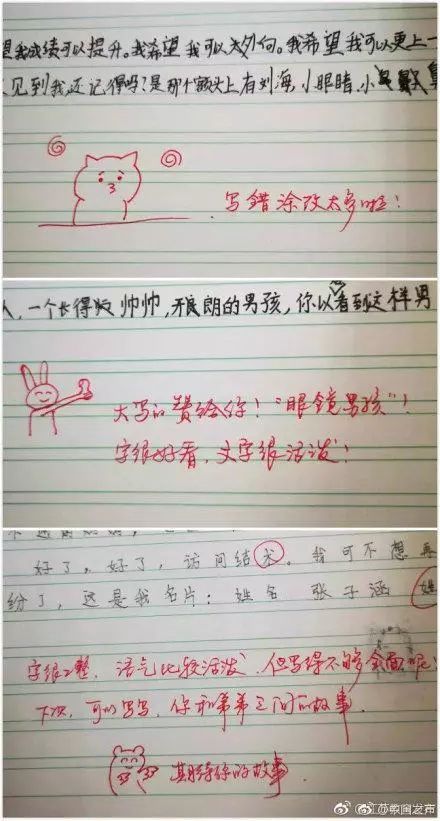 望我成绩可以提升。我希望我可以大外向。我希望我可以更上一
见到我,还记得吗?是那个额头上有刘海,小眼睛,小鼻
写错涂改太多啦!
人,一个长得 帅帅,开朗的男孩,你以看到这样男
大写的赞给你!"眼镜男孩"!
字很好看,文字很活泼!
好了,好了,访问结术。我可不想再
纷了,这是我名片:姓名 张子涵 姓
字很工整,语气比较活泼,但写得不够全面呢!
下次,可以写写,你和弟弟之间的故事
期待你的故事
@江苏教育发布